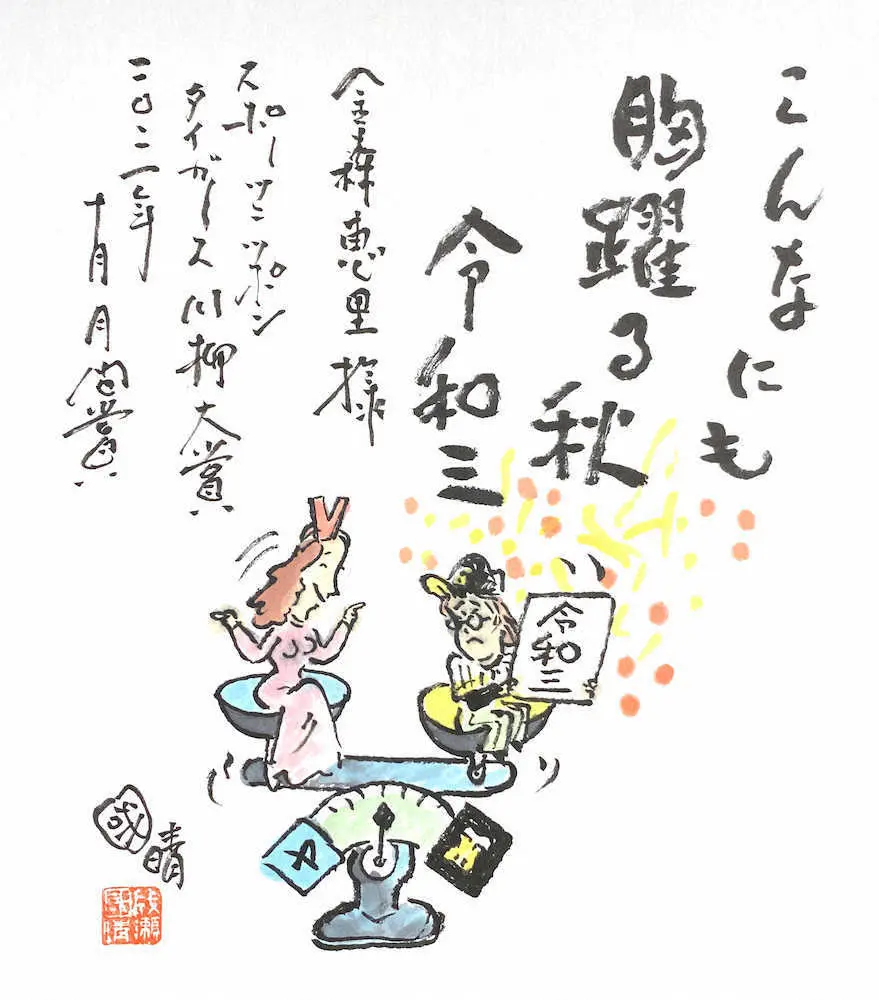 こんなにも
胸躍る秋
令和三
金森恵里様
スポーツニッポン
タイガース川柳大賞
二〇二一年
十月月間賞
令和三
國晴